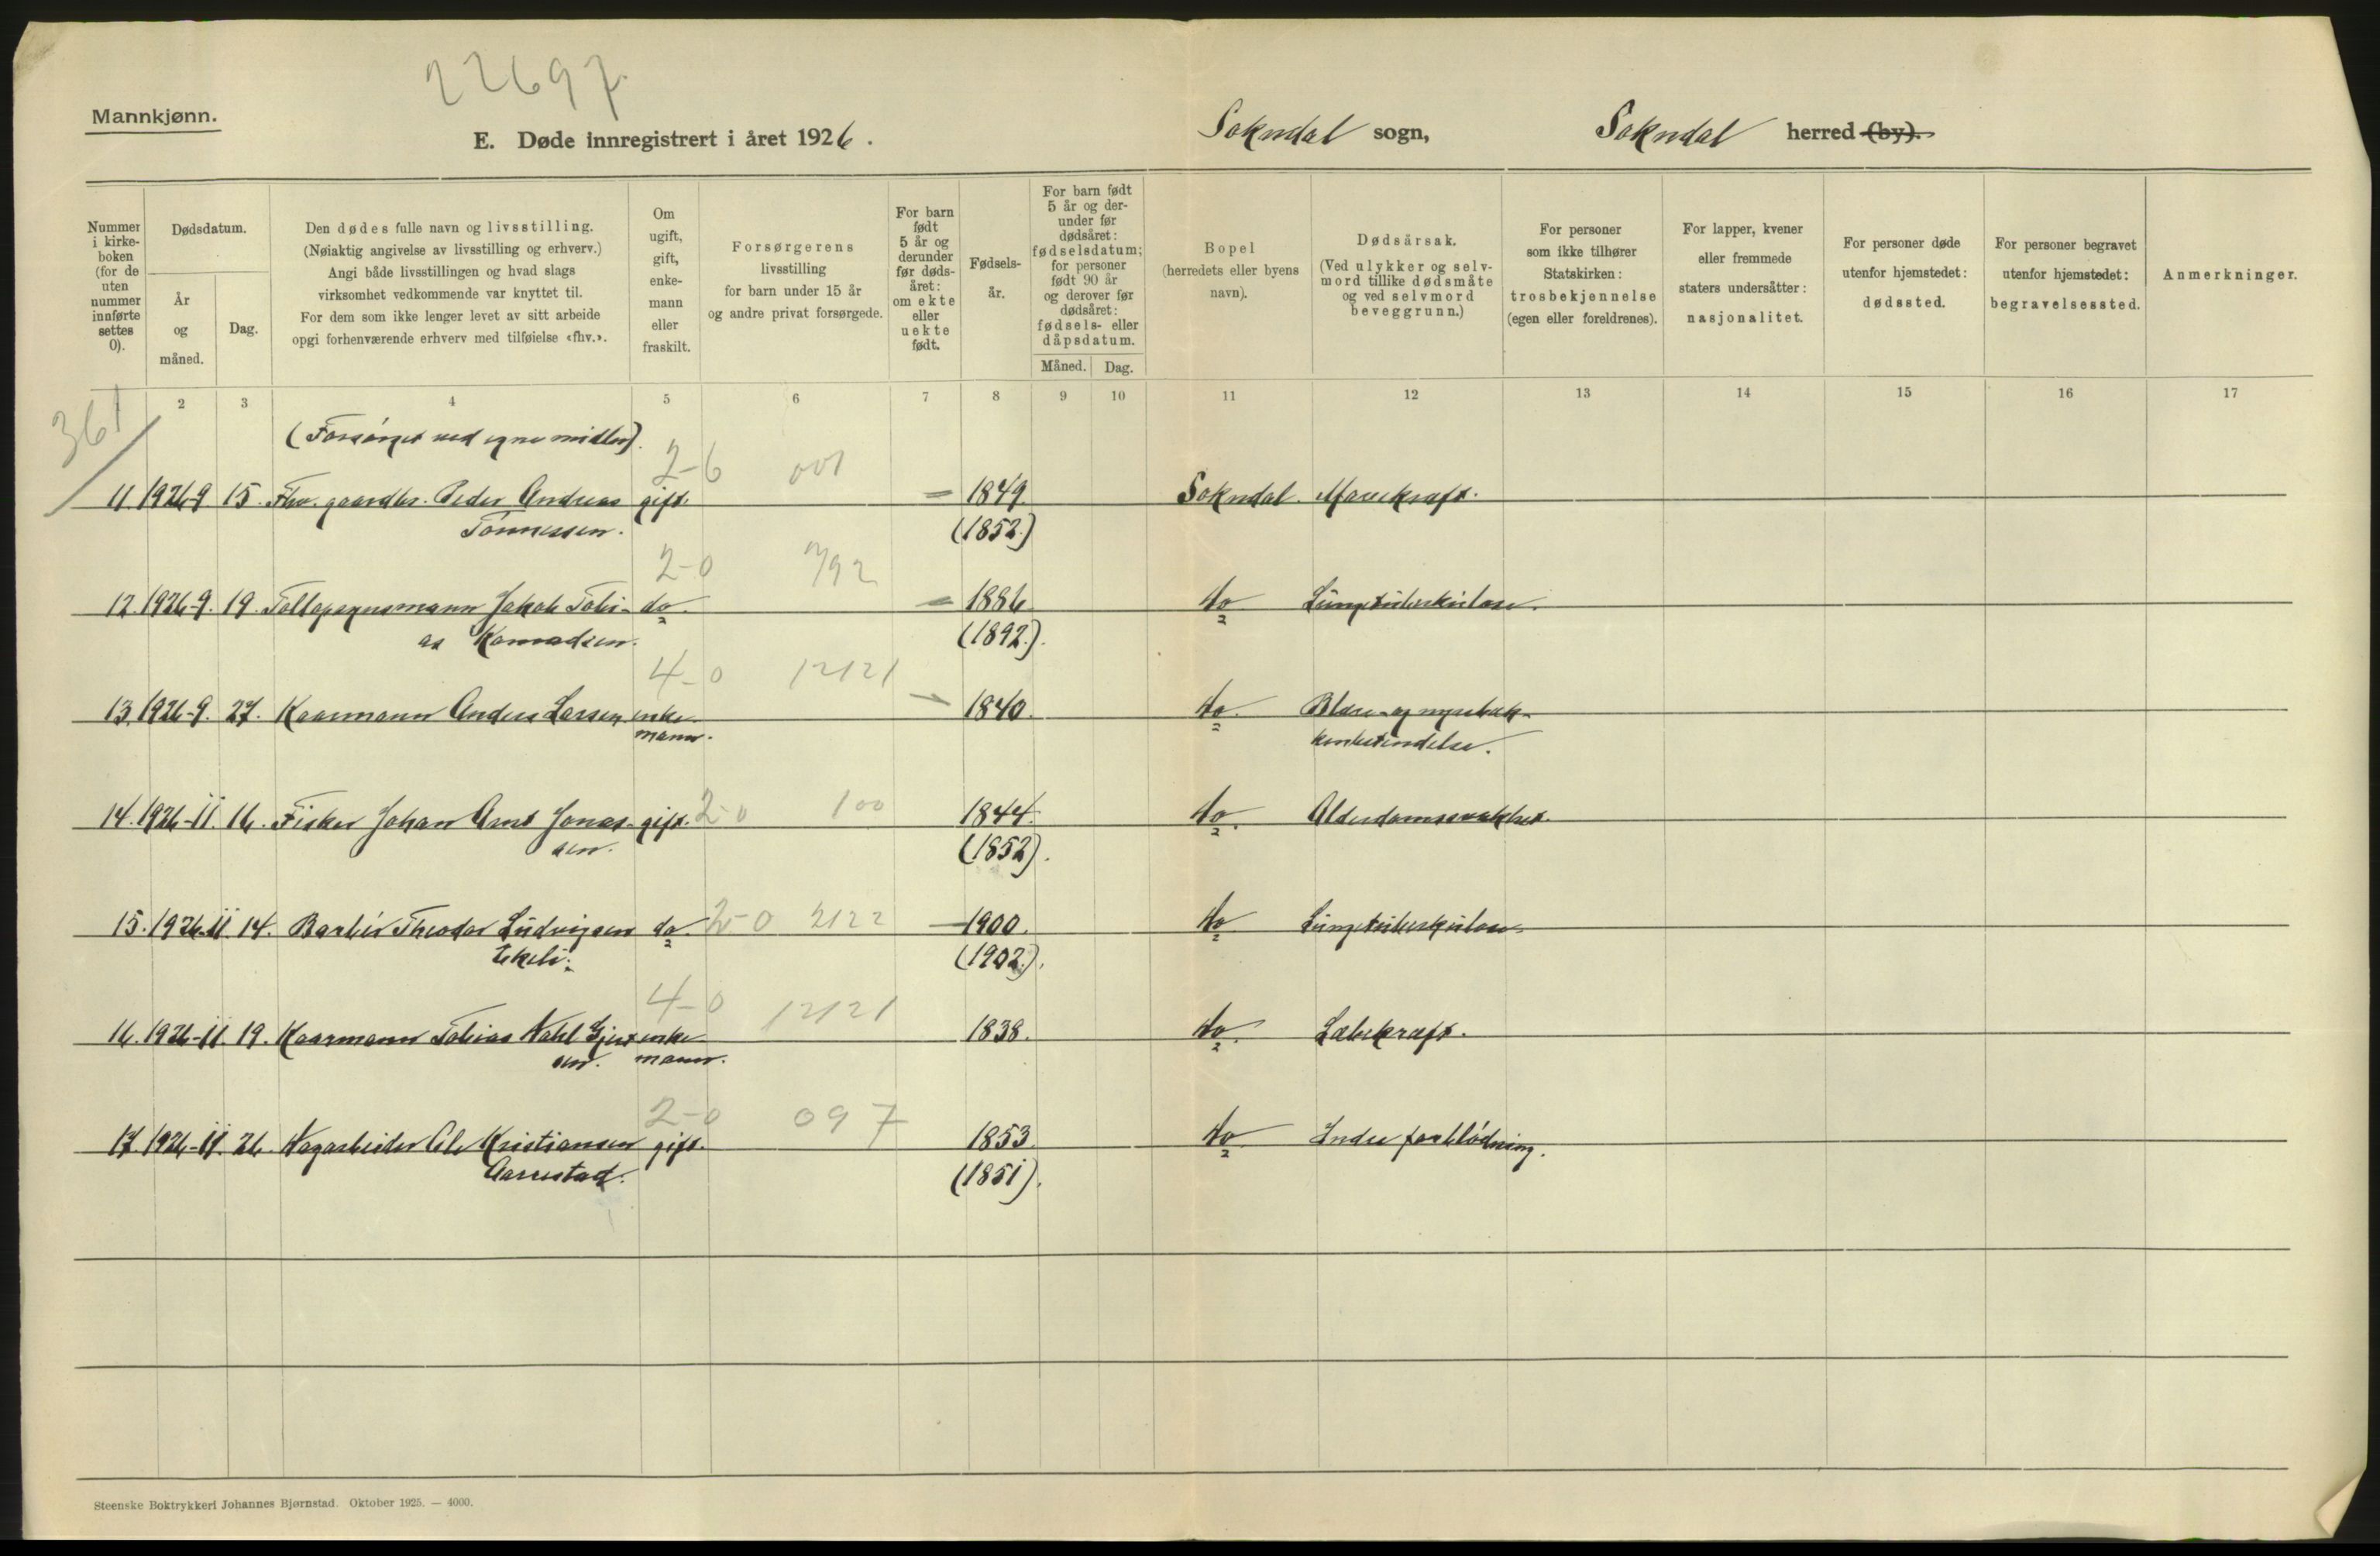 22697.
Mannkjønn.
E. Døde innregistrert i året 1926.
Sokndal sogn,
Sokndal herred (by).
Nummer i kirke-boken (for de uten nummer innførte settes 0).
Dødsdatum.
År og måned.
Dag.
Den dødes fulle navn og livsstilling.
(Nøiaktig angivelse av livsstilling og erhverv.)
Angi både livsstillingen og hvad slags
virksomhet vedkommende var knyttet til.
For dem som ikke lenger levet av sitt arbeide
opgi forhenværende erhverv med tilføielse «fhv.».
Om ugift, gift, enke-mann eller fraskilt.
Forsørgerens
livsstilling
for barn under 15 år
og andre privat forsørgede.
For barn født 5 år og derunder før døds-året: om ekte eller uekte født.
Fødsels-år.
For barn født 5 år og der-under før dødsåret: fødselsdatum; for personer født 90 år og derover før dødsåret: fødsels- eller dåpsdatum.
Måned. Dag.
Bopel
(herredets eller byens
navn).
Dødsårsak.
(Ved ulykker og selv-
mord tillike dødsmåte
og ved selvmord
beveggrunn.)
For personer
som ikke tilhører
Statskirken:
trosbekjennelse
(egen eller foreldrenes).
For lapper, kvener
eller fremmede
staters undersåtter:
nasjonalitet.
For personer døde
utenfor hjemstedet:
dødssted.
For personer begravet
utenfor hjemstedet:
begravelsessted.
Anmerkninger.
1 2 3 4 5 6 7 8 9 10 11 12 13 14 15 16 17
361
(Forsørget ved egne midler).
2-6 001
11. 1926-9 15. Fhv. gaardbr. Peder Andreas gift. 1849 Sokndal. Marekraft.
Tönnessen. (1852)
2-0 792
12. 1926-9. 19. Tollopsynsmann Jakob Tobi- do. 1886 do Lungetuberkulose.
as Konradsen. (1892.).
4-0 12121
13. 1926-9. 27. Kaarmann Anders Larsen enke- 1840. do. Blære- og nyrebæk-
mann. kenbetendelse.
14. 1926-11. 16. Fisker Johan Arnt Jonas- gift. 2-0 100 1844. do. Alderdomssvakhet.
sen. (1852).
15. 1926-11. 14. Barbér Theodor Ludvigsen do. 2-0 2122 1900. do Lungetuberkulose.
Ekeli. (1902.).
4-0 12121
16. 1926-11. 19. Kaarmann Tobias Vatl Gjert enke- 1838. do. Lælekræft.
sen. mann.
2-0 097
17. 1926-11. 26. Vegarbeider Ole Kristiansen gift. 1853 do Indre forblödning.
Aarrestad. (1851).
Steenske Boktrykkeri Johannes Bjørnstad. Oktober 1925. — 4000.